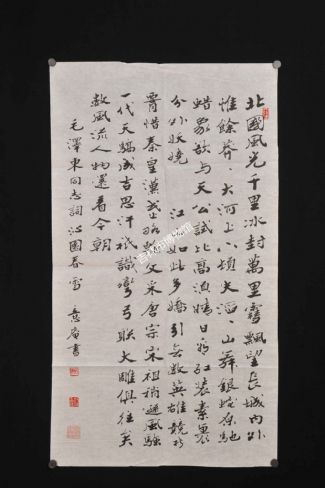 北國風光千里冰封萬里雪飄望長城内外
惟餘莽〻大河上下頓失滔〻山舞銀蛇原馳
蜡象欲与天公試比高須晴日看红裝素裹
分外妖嬈 江山如此多嬌引無數英雄競折
腰惜秦皇漢武略輸文采唐宗宋祖稍遜風騷
一代天驕成吉思汗祇識彎弓射大雕俱往矣
數風流人物還看今朝
毛澤東同志詞沁園春雪 意庵書